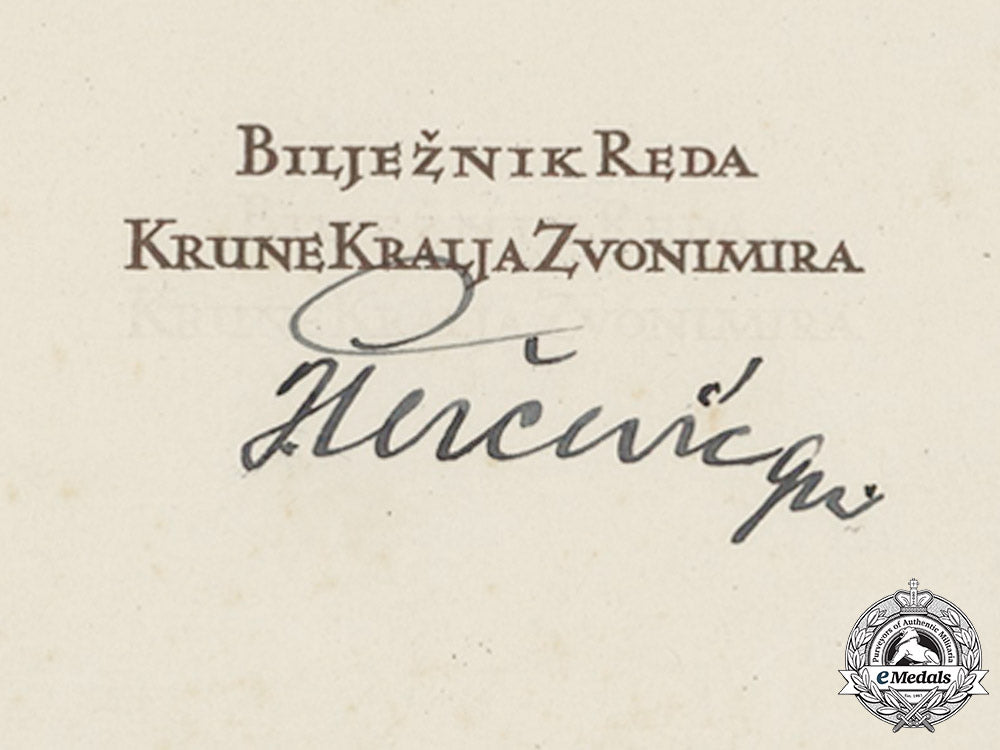 BILJEŽNIK REDA
KRUNE KRALJA ZVONIMIRA
Purveyors of Authentic Militaria
eMedals